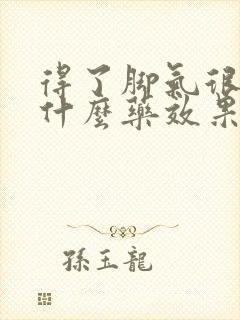 得了脚氣很
什麽藥效果
孫玉龍